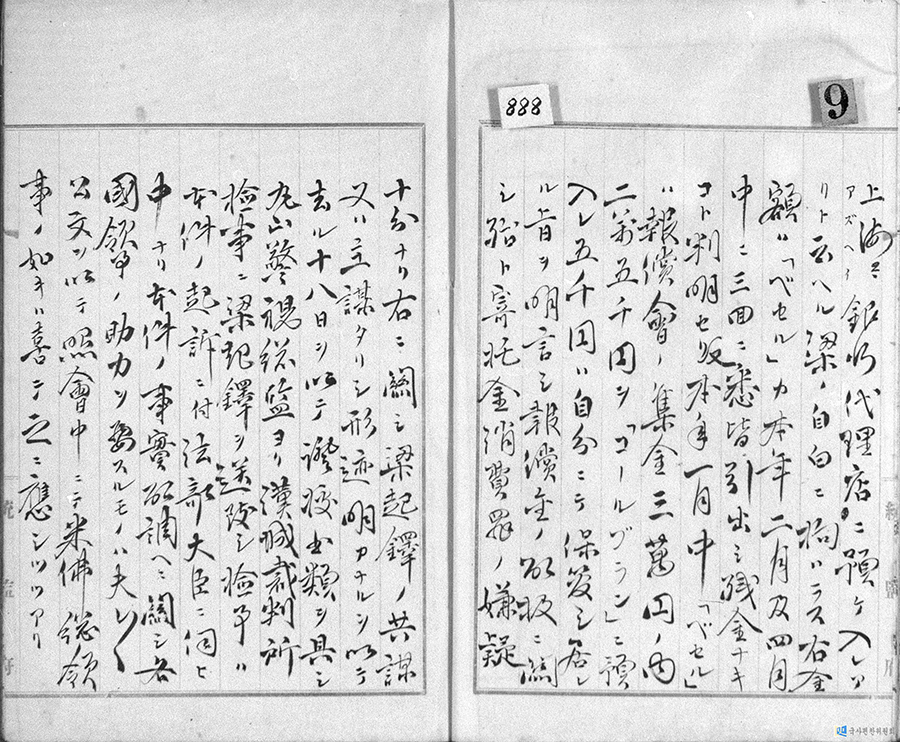 888
9
上海ニ銀行代理店ニ預ケ入レア
アズヘイ
リト云ヘル梁ノ自白ニ拘ハラス右金
額ハ「ベセル」カ本年二月及四月
中ニ三回ニ悉皆引出シ残金ナキ
コト判明セリ又本年一月中「ベセル」
ハ報償會ノ集金三萬円ノ内
二萬五千円ヲ「コールブラン」ニ預
入レ五千円ハ自分ニテ保管シ居
ル旨ヲ明言シ報償金ノ取扱ニ関
シ殆ト寄托金消費罪ノ嫌疑
十分ナリ右ニ関シ梁起鐸ノ共謀
又ハ主謀タリシ形迹明カナルヲ以テ
去ル十八日ヲ以テ證拠書類ヲ具シ
丸山警視総監ヨリ漢城裁判所
検事ニ梁起鐸ヲ送致シ検事ハ
本件ノ起訴ニ付法部大臣ニ伺ヒ
中ナリ本件ノ事実取調ヘニ関シ各
國領事ノ助力ヲ要スルモノハ夫々
公文ヲ以テ照會中ニテ米佛総領
事ノ如キハ喜テ之ニ應シツツアリ
統監府
統監府
국사편찬위원회